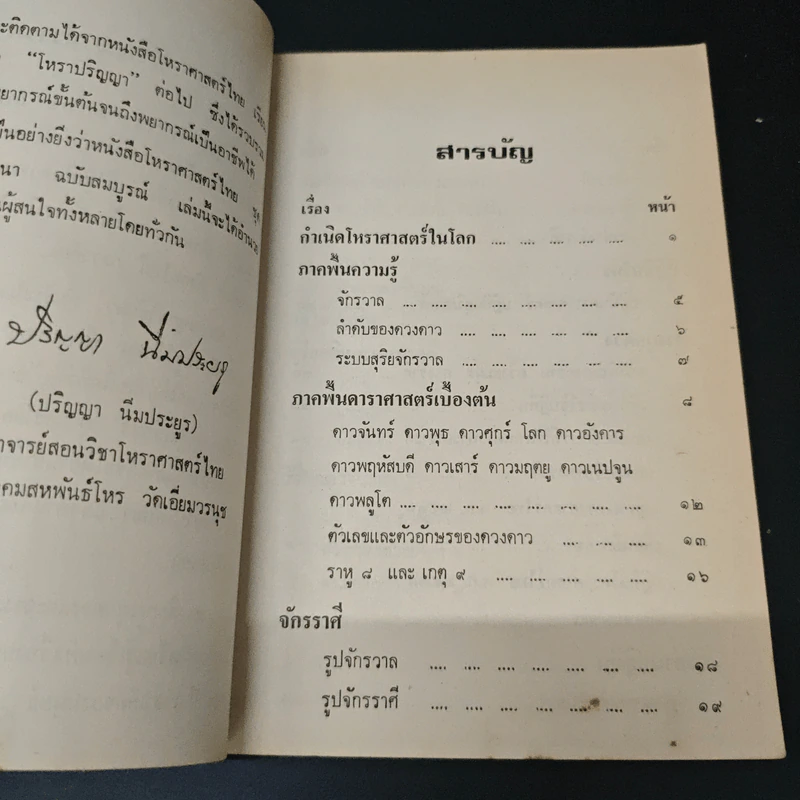 ะติดตามได้จากหนังสือโหราศาสตร์ไทย เรียน
“โหราปริญญา” ต่อไป ซึ่งได้รวบรวม
พยากรณ์ขั้นต้นจนถึงพยากรณ์เป็นอาชีพได้
ป็นอย่างยิ่งว่าหนังสือโหราศาสตร์ไทย ชุด
นา ฉบับสมบูรณ์ เล่มนี้จะได้อำนวย
ผู้สนใจทั้งหลายโดยทั่วกัน
ปริญญา นิ่มประยูร
(ปริญญา นิ่มประยูร)
าจารย์สอนวิชาโหราศาสตร์ไทย
คมสหพันธ์โหร วัดเอี่ยมวรนุช
สารบัญ
เรื่อง หน้า
กำเนิดโหราศาสตร์ในโลก .... .... .... .... .... ๑
ภาคพื้นความรู้
จักรวาล .... .... .... .... .... .... .... .... ๕
ลำดับของดวงดาว .... .... .... .... .... .... ๖
ระบบสุริยจักรวาล .... .... .... .... .... .... ๗
ภาคพื้นดาราศาสตร์เบื้องต้น ๘
ดาวจันทร์ ดาวพุธ ดาวศุกร์ โลก ดาวอังคาร
ดาวพฤหัสบดี ดาวเสาร์ ดาวมฤตยู ดาวเนปจูน
ดาวพลูโต .... .... .... .... .... .... .... .... ๑๒
ตัวเลขและตัวอักษรของดวงดาว .... .... .... ๑๓
ราหู ๘ และ เกตุ ๙ .... .... .... .... .... ๑๖
จักรราศี
รูปจักรวาล .... .... .... .... .... .... .... ๑๘
รูปจักรราศี .... .... .... .... .... .... .... ๑๙